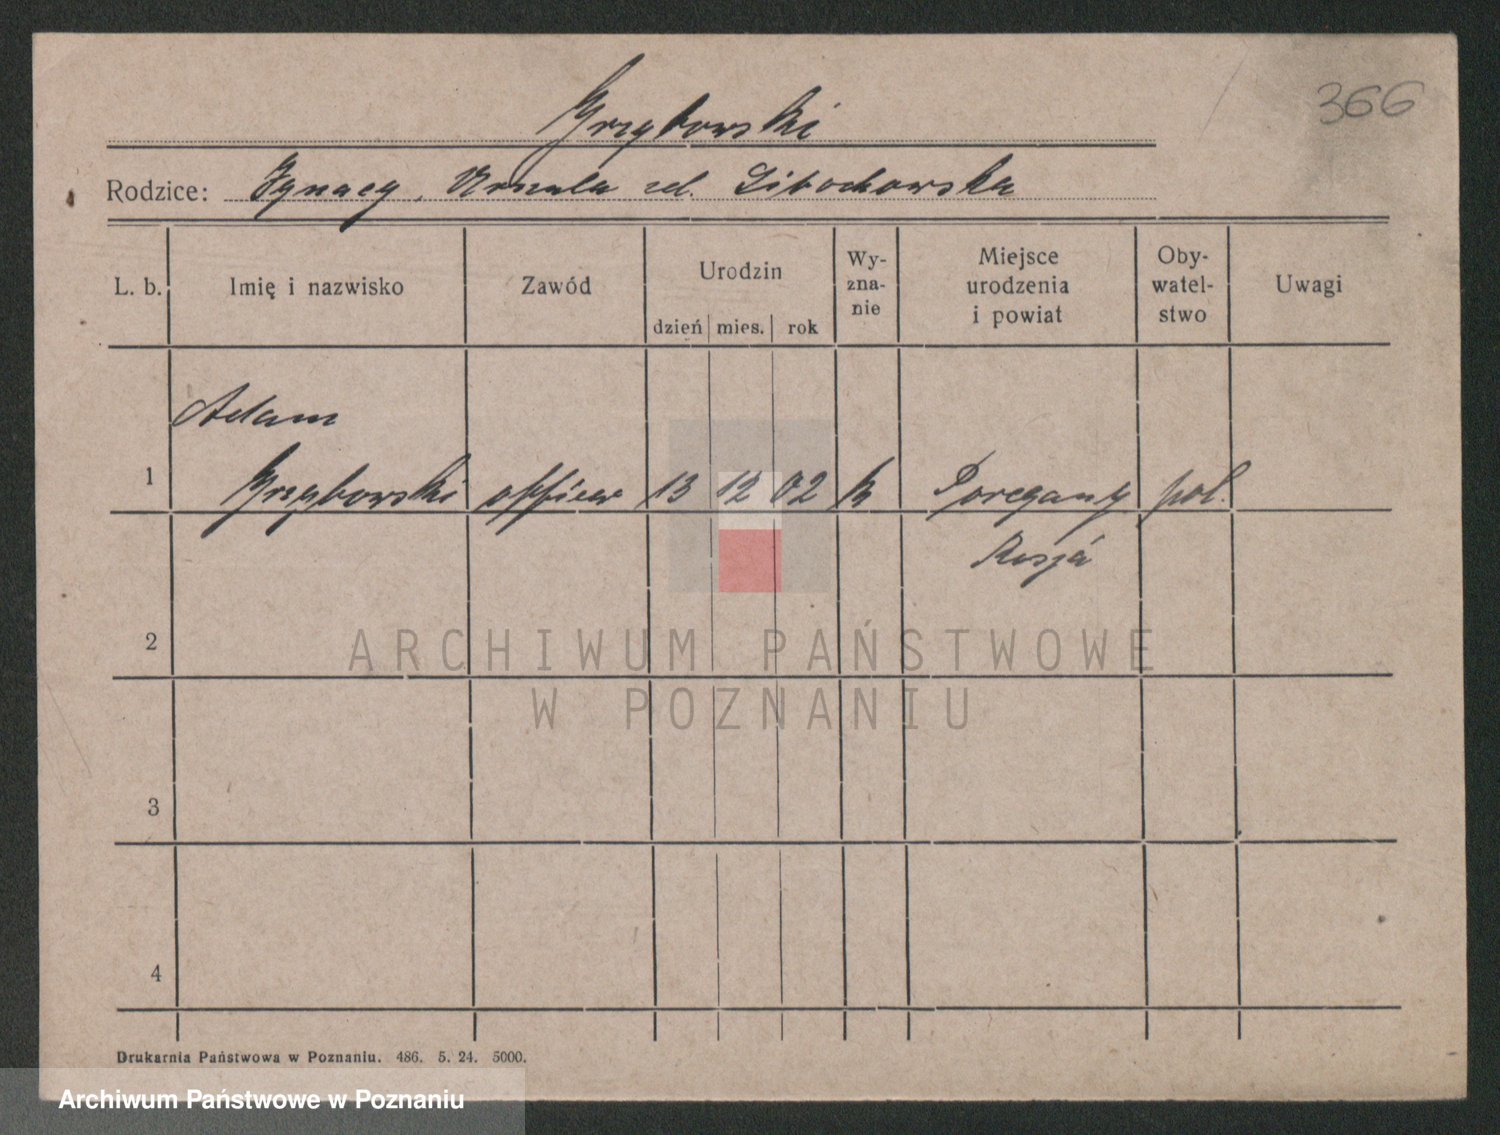 366
Grzybowski
Rodzice: Ignacy, Urszula zd.
L. b. Imię i nazwisko Zawód Urodzin dzień mies. rok Wy-zna-nie Miejsce urodzenia i powiat Oby-watel-stwo Uwagi
Adam
1 Grzybowski officer 13 12 02 k pol.
Rosja
2
ARCHIWUM PAŃSTWOWE
W POZNANIU
3
4
Drukarnia Państwowa w Poznaniu. 486. 5. 24. 5000.
Archiwum Państwowe w Poznaniu